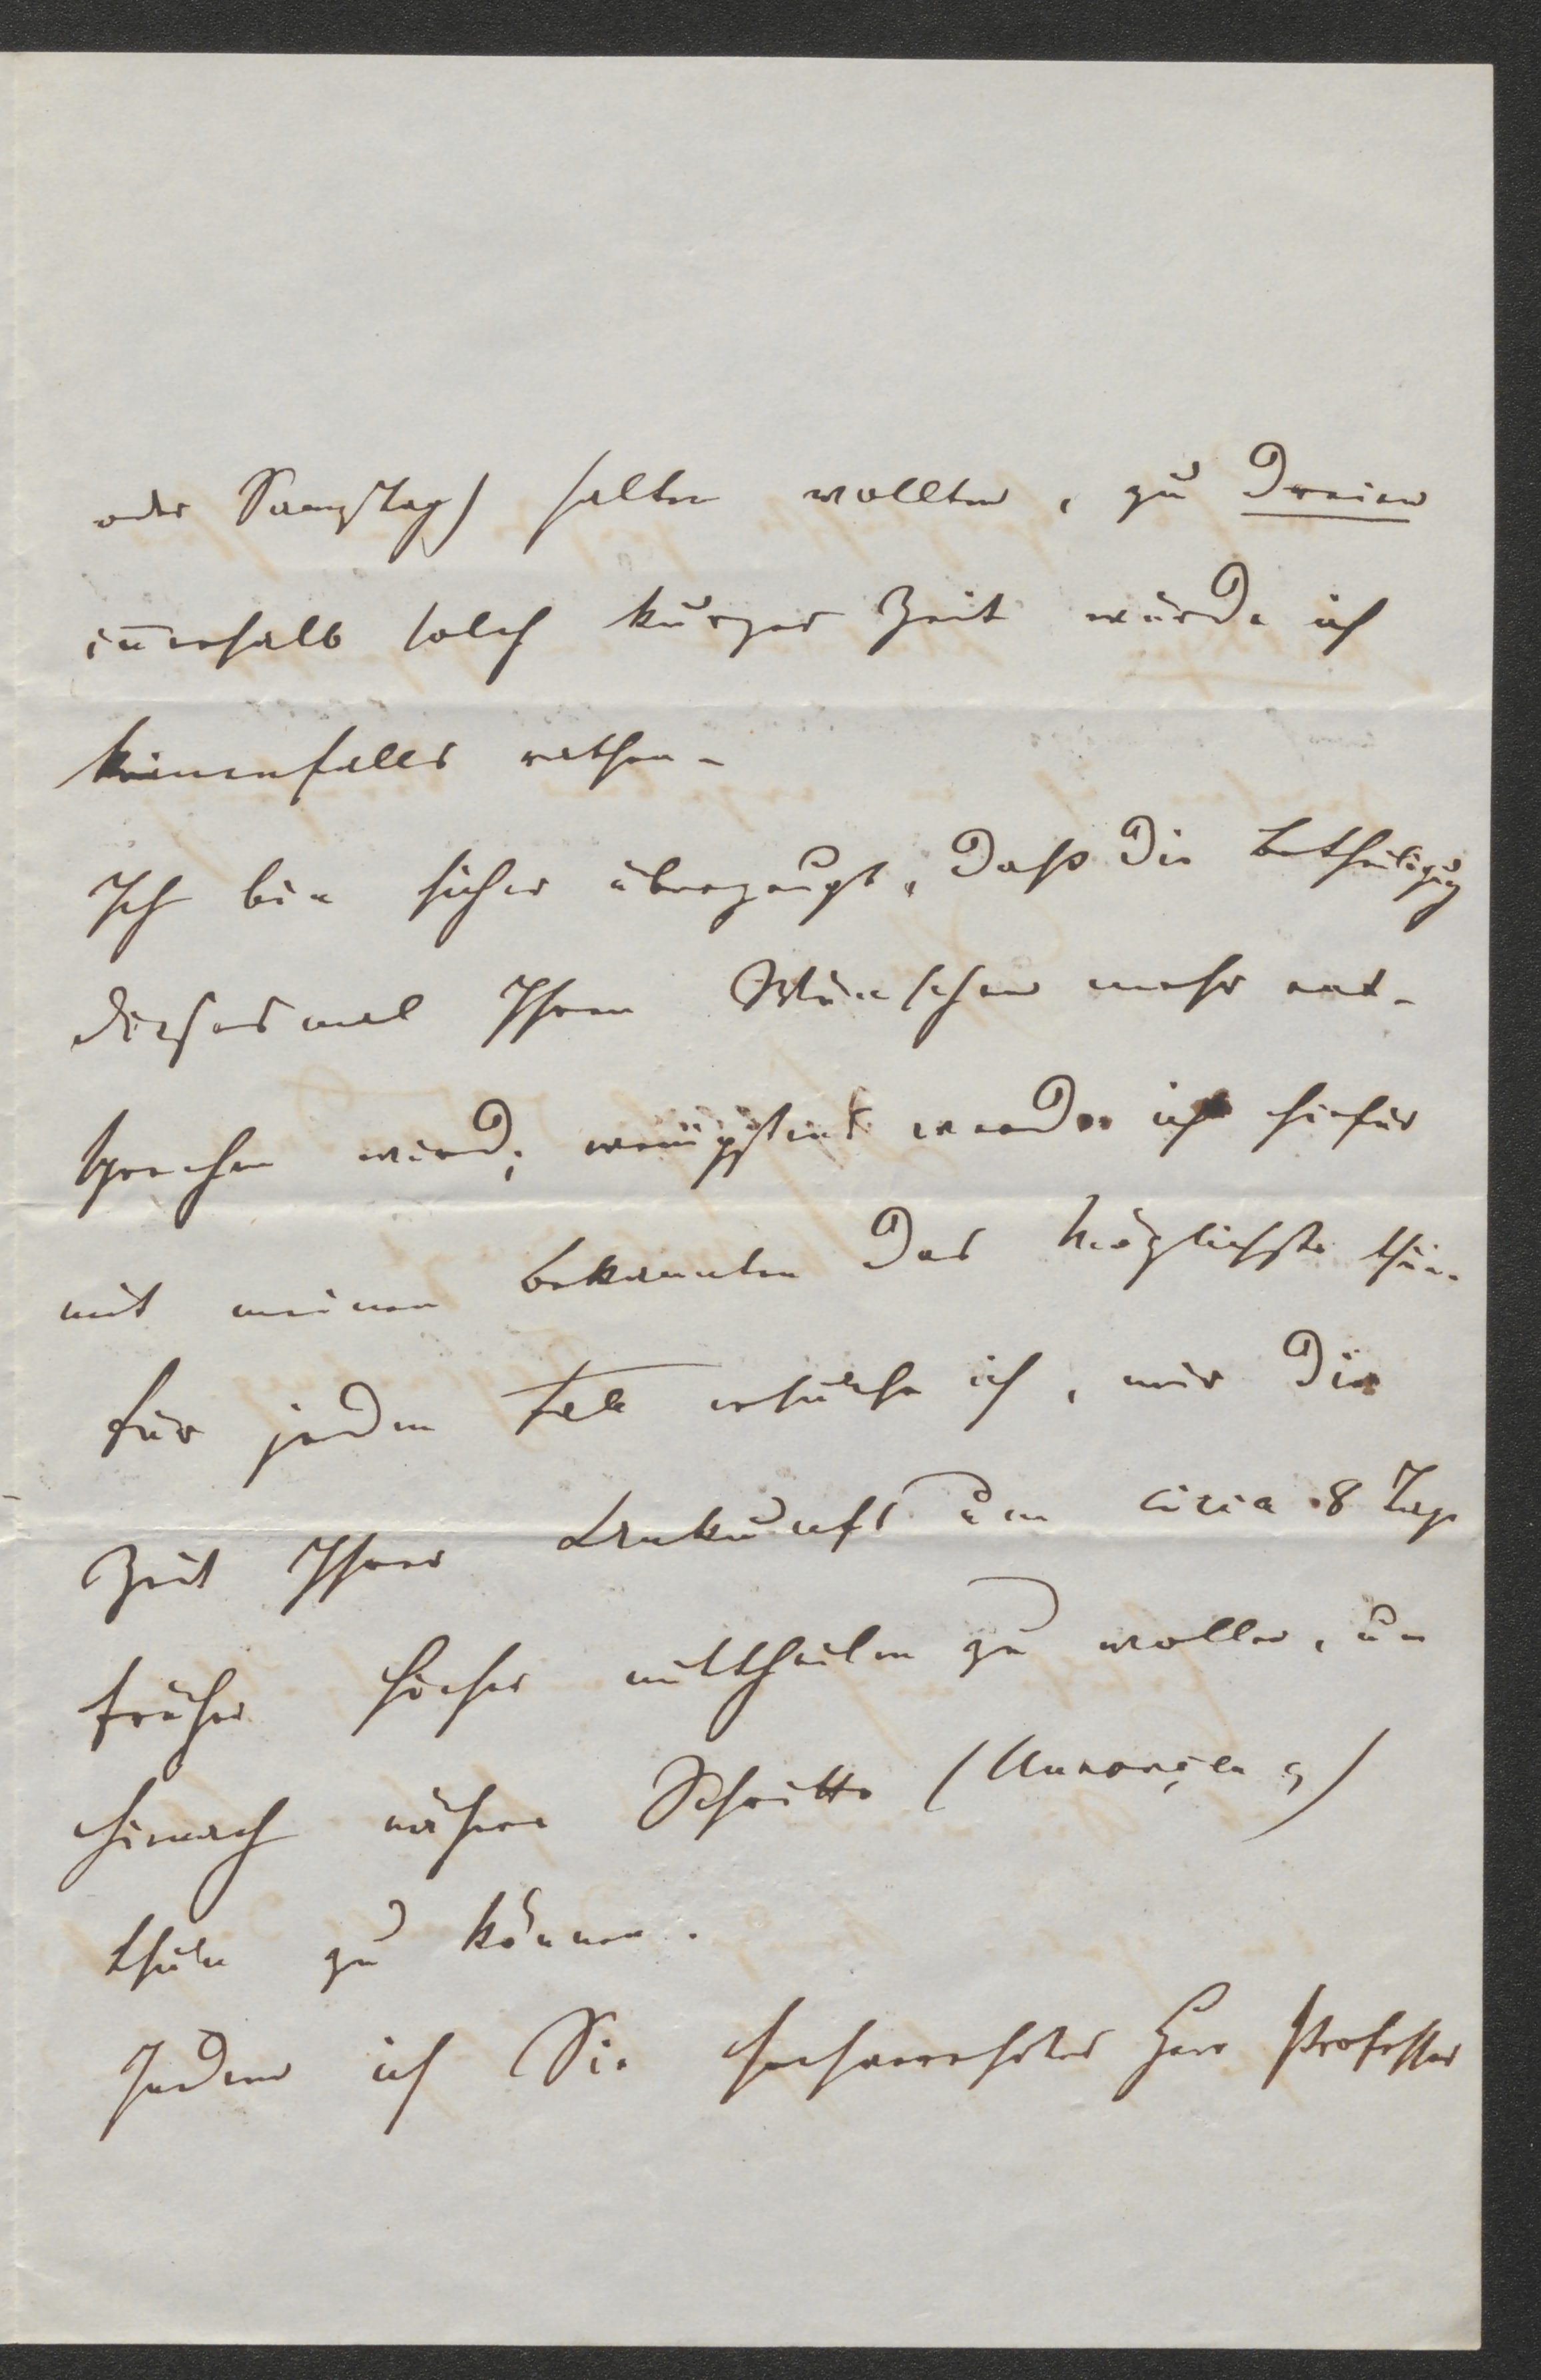 oder Samstag) halten wollten, zu Dreien
in̅erhalb solch kurzer Zeit würde ich
keinenfalls rathen –
Ich bin sicher überzeugt, daß die Betheiligung
diesesmal Ihren Wünschen mehr ent-
sprechen wird; wenigstens werde ich hiefür
mit meinen Bekannten das Möglichste thun.
Für jeden Fall ersuche ich, mir die
Zeit Ihrer Ankunft um circa 8 Tage
früher hieher mittheilen zu wollen, um
hienach nähere Schritte (Annonçen)
thun zu können.
Indem ich Sie hochverehrter Herr Professor